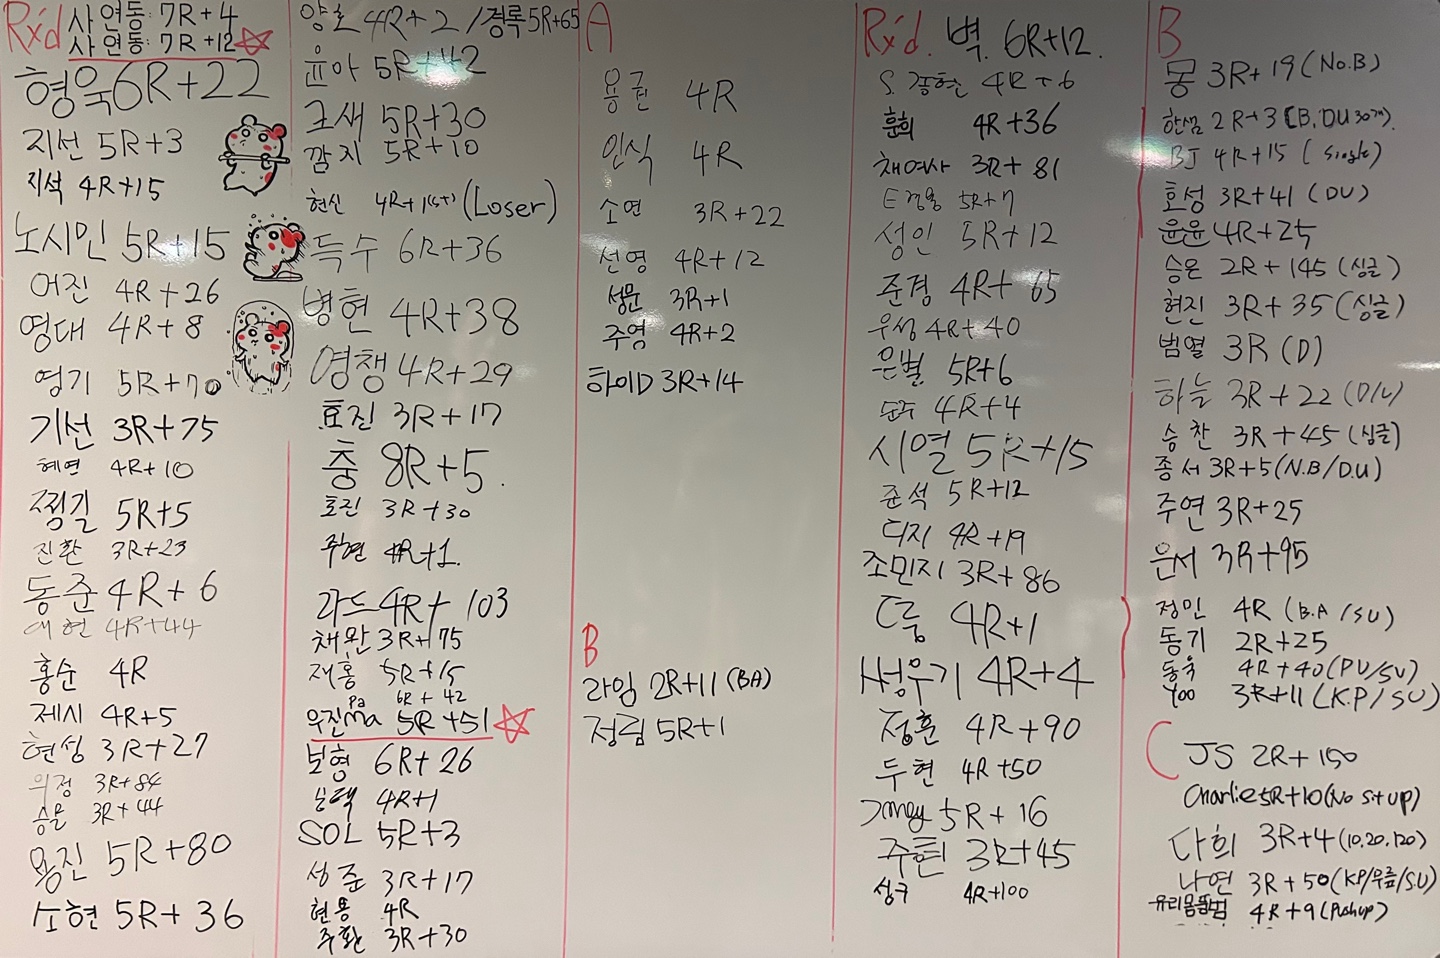 Rx'd 사연동: 7R+4
사연동: 7R+12
형욱 6R+22
지선 5R+3
지석 4R+15
노시민 5R+15
어진 4R+26
영대 4R+8
영기 5R+70
기선 3R+75
혜연 4R+10
찜길 5R+5
진환 3R+23
동준 4R+6
애현 4R+44
홍순 4R
제시 4R+5
현성 3R+27
의정 3R+84
승윤 3R+44
용진 5R+80
소현 5R+36
양호 4R+2 / 경록 5R+65
윤아 5R+42
크새 5R+30
깜지 5R+10
현신 4R+1 (Loser)
득수 6R+36
병현 4R+38
영챙 4R+29
효진 3R+17
충 8R+5
효진 3R+30
주현 4R+1
라드 4R+103
채완 3R+75
재홍 5R+15
Pa 6R+42
우진 Ma 5R+51
보형 6R+26
4R+1
SOL 5R+3
성준 3R+17
현용 4R
주환 3R+30
A
용권 4R
인식 4R
소연 3R+22
선영 4R+12
성문 3R+1
주영 4R+2
하이D 3R+14
B
라임 2R+11 (BA)
정림 5R+1
Rx'd. 벽. 6R+12.
S. 종현 4R+6
훈희 4R+36
채여사 3R+81
E 경용 5R+7
성인 5R+12
준경 4R+65
우성 4R+40
은별 5R+6
4R+4
시열 5R+15
준석 5R+12
디지 4R+19
조민지 3R+86
C룡 4R+1
H성우기 4R+4
정훈 4R+90
두현 4R+50
5R+16
주현 3R+45
성구 4R+100
B
몽 3R+19 (No.B)
한샘 2R+3 (B.DU 30개).
BJ 4R+15 (Single)
효성 3R+41 (DU)
윤윤 4R+25
승온 2R+145 (싱글)
현진 3R+35 (싱글)
범열 3R (D)
하늘 3R+22 (D/U)
승찬 3R+45 (싱글)
종서 3R+5 (N.B/D.U)
주연 3R+25
운서 3R+95
정민 4R (B.A/SU)
동기 2R+25
동욱 4R+40 (PU/SU)
Yoo 3R+11 (K.P/SU)
C JS 2R+150
Charlie 5R+10 (No situp)
다희 3R+4 (10.20.120)
나연 3R+50 (KP/무릎/SU)
4R+9 (Pushup)